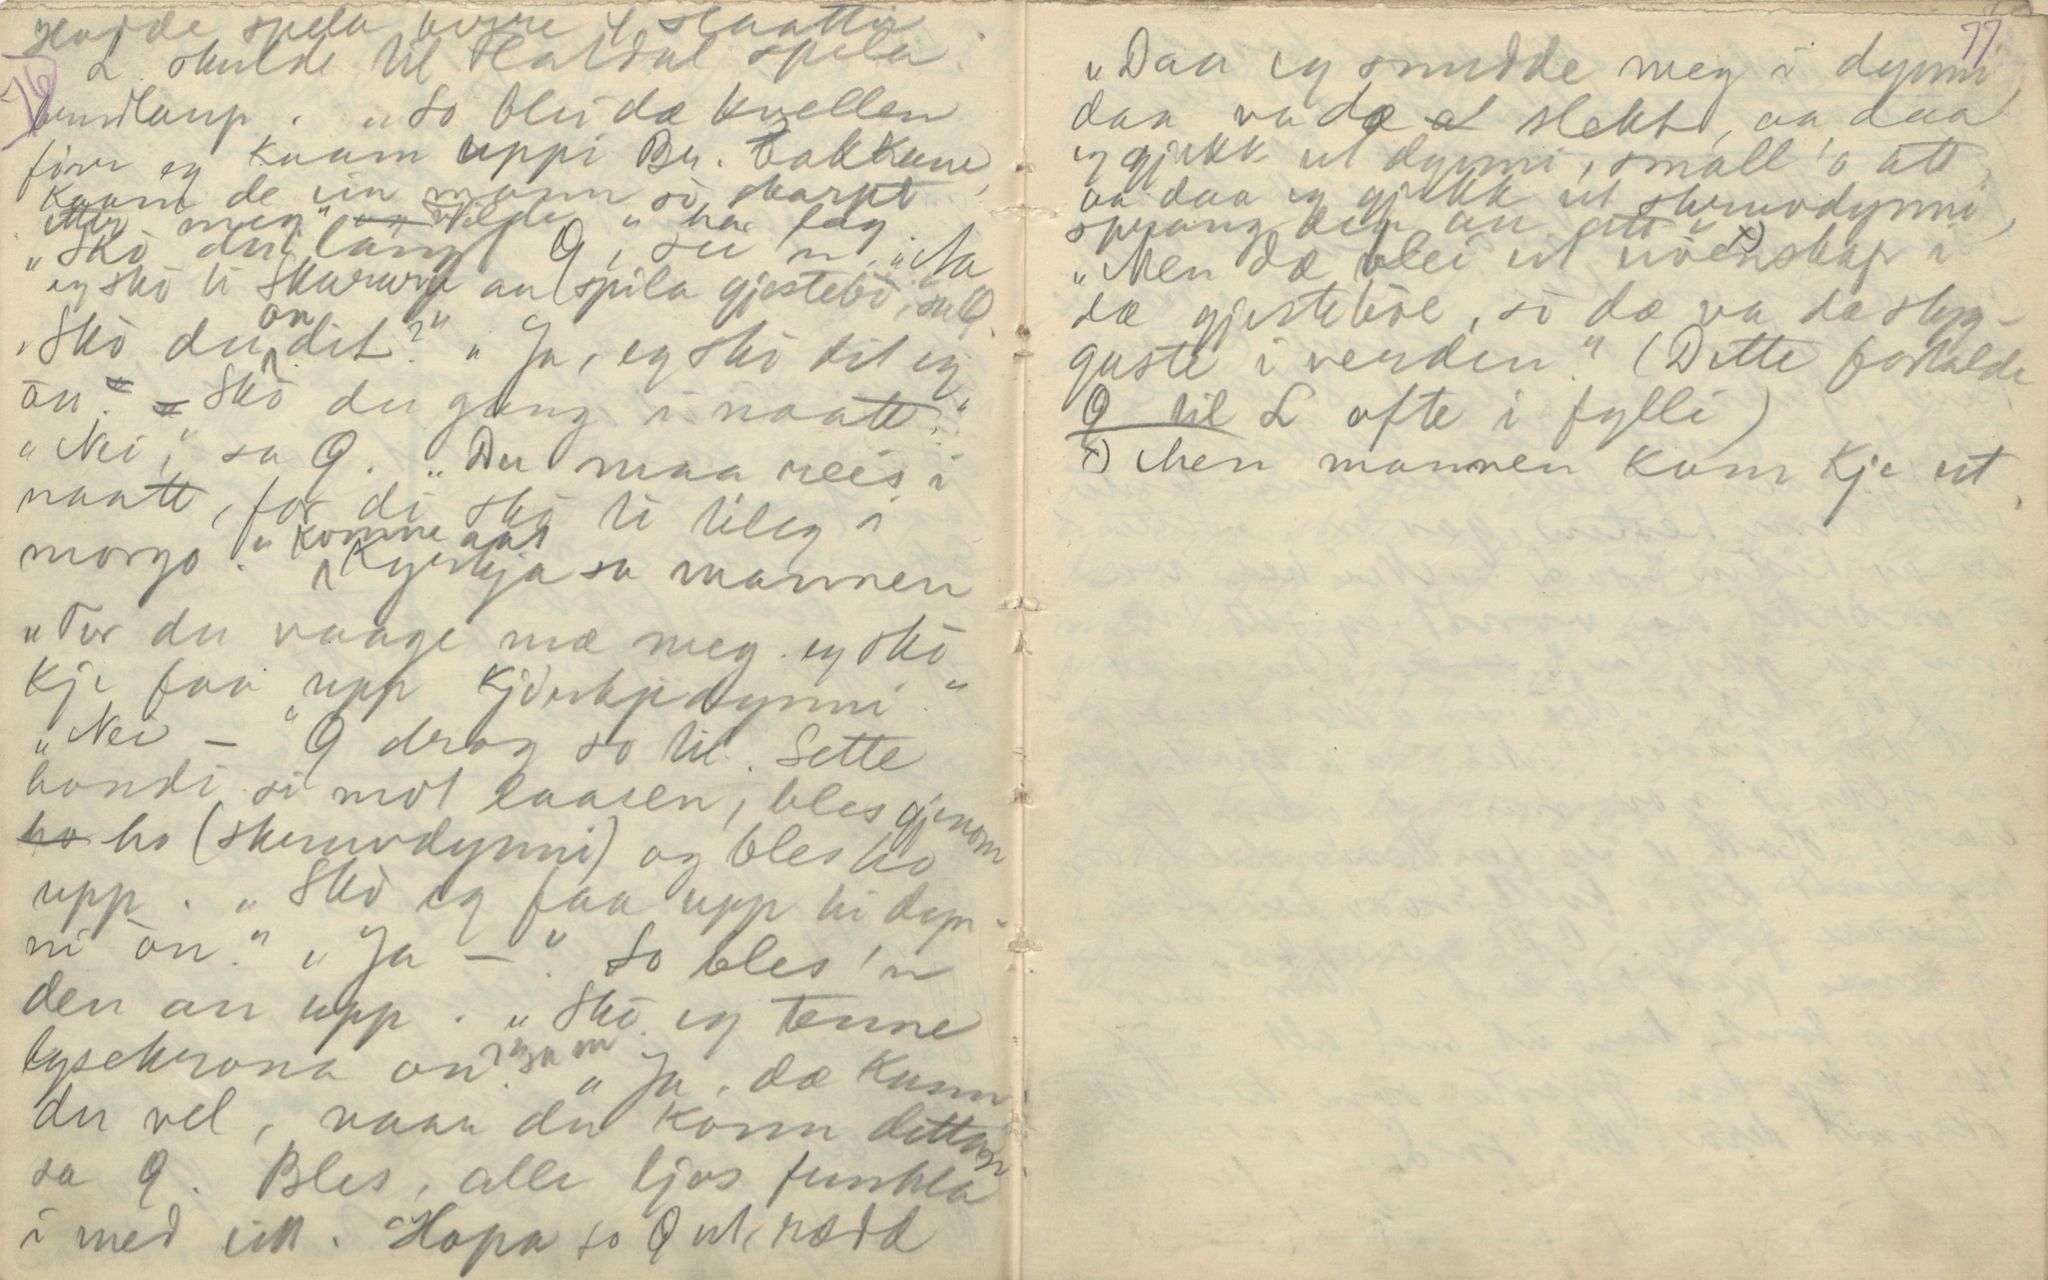 76
Hadde spela burre 4 slaattir.
L. skulde til Haldal spela
brudlaup. "So blei dæ kvellen
førr eg kaam uppi Bu. bakkane,
kaam de ein mann så skarpt
etter meg"
"Skò du langt O, sei 'n. "Aa
eg skò ti Skurve an spila gjestebò, sa O.
"Skò du òn dit?" "Ja, eg skò dit eg
òn." "Skò du gang i naatt?"
"Nei," sa O. "Du maa reis i
naatt, for di skò ti tileg i
morgo." Komne aat Kyrkja sa mannen
"Tor du vaage mæ meg. eg skò
kje faa upp kjörkjedynni."
"Nei – " O drog so til. Sette
hondi si mot laasen, bles gjenom
ho (skruvdynni) og bles ho
upp. "Skò eg faa upp hi dyn-
ni òn." "Ja –". So bles 'n
den an upp. "Skò eg tenne
lysekrona òn?" sa 'n "Ja, dæ kann
du vel, naar du konn detta"
sa O. Bles, alle ljos funkla
i med eitt. Hopa so O ut, rædd
77
"Daa eg snudde meg i dynni,
daa va dæ slekt, aa daa
eg gjekk ut dynni, small 'o att
aa daa eg gjekk ut skruvdynni,
sprang den an att
"Men dæ blei ut uvenskap x) i
dæ gjestebòe, sò dæ va da styg-
gaste i verden." (Dette fortalde
O til L ofte i fylli)
x) Men mannen kom kje ut.